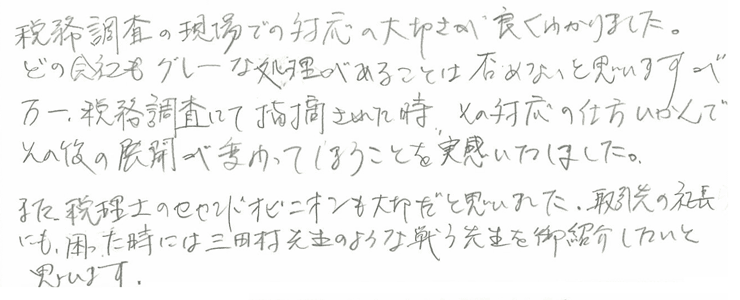 税務調査の現場での対応の大切さが良くわかりました。
どの会社もグレーな処理があることは否めないと思いますが
万一、税務調査にて指摘された時、その対応の仕方いかんで
その後の展開が変わってしまうことを実感いたしました。
また、税理士のセカンドオピニオンも大切だと思いました。取引先の社長
にも、困った時には三田村先生のような戦う先生を御紹介したいと
思います。